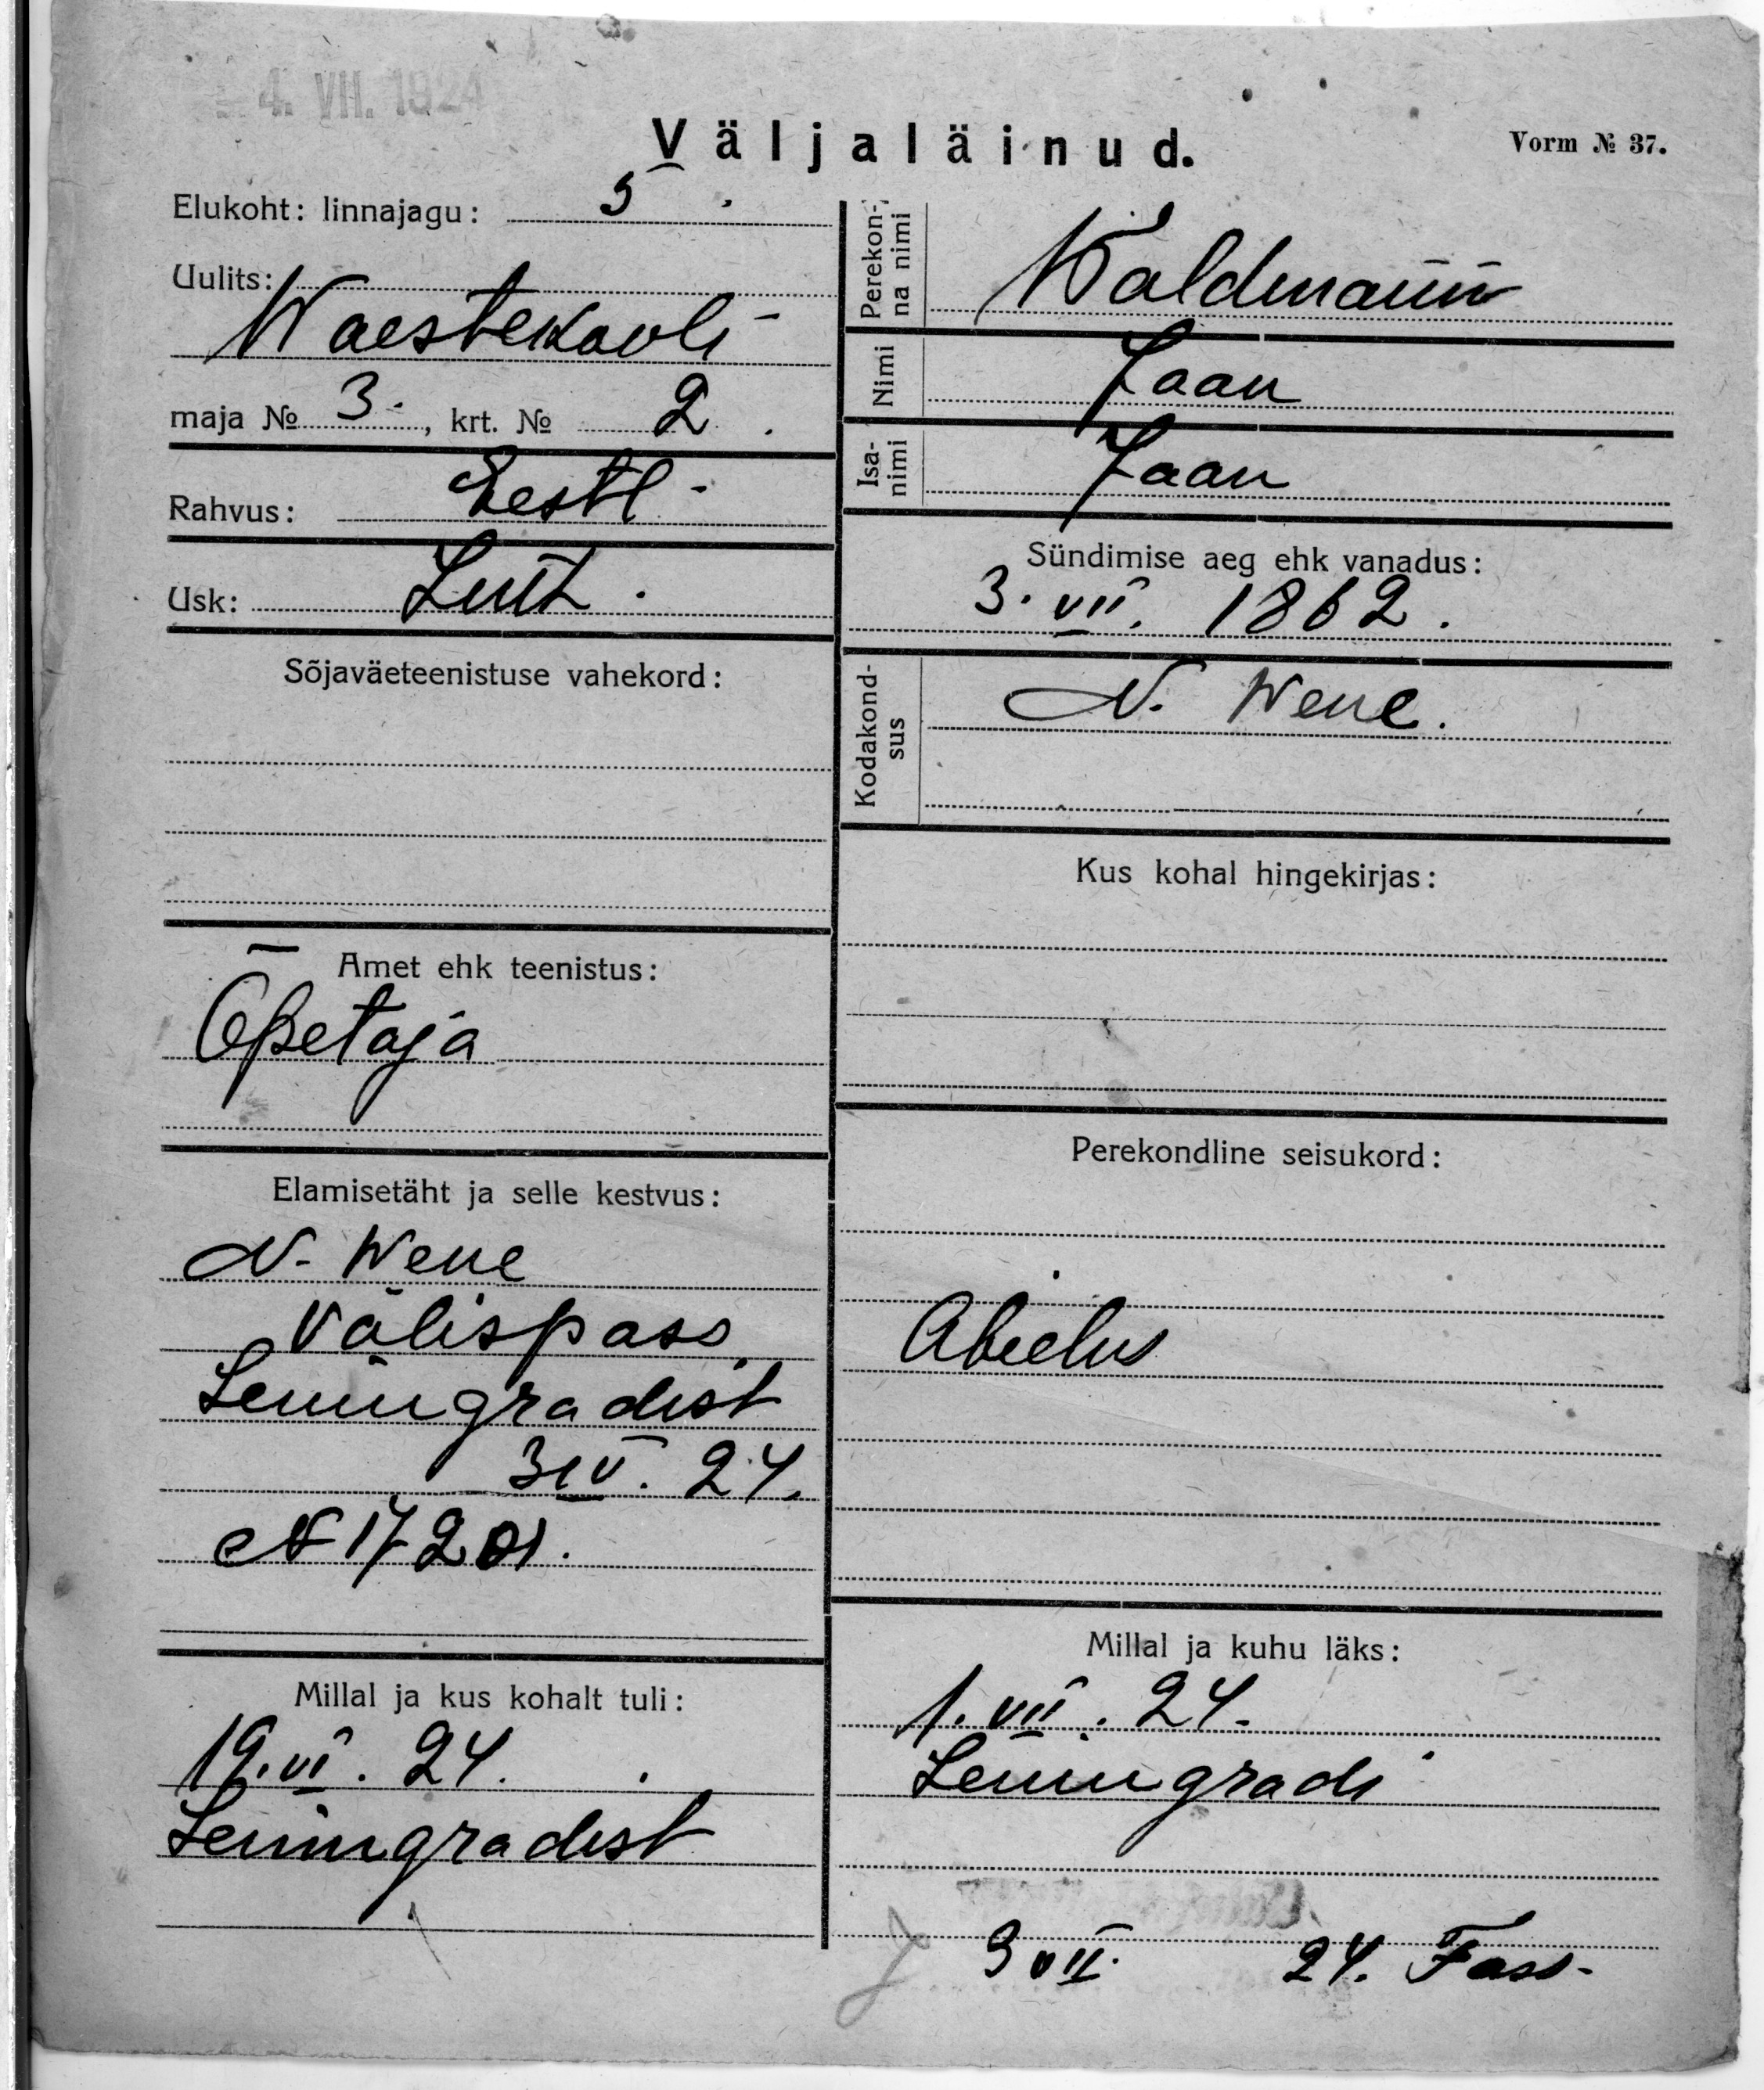 4. VII. 1924
Väljaläinud.
Vorm № 37.
Elukoht: linnajagu: 5
Uulits:
Waestekooli
maja № 3., krt. № 2.
Rahvus: Eesti
Usk: Luth.
Sõjaväeteenistuse vahekord:
Amet ehk teenistus:
Õpetaja
Elamisetäht ja selle kestvus:
N. Wene
Välispass
Leningradist
3 IV. 24.
N 17201.
Millal ja kus kohalt tuli:
19. VI. 24.
Leningradist
Perekon-
na nimi
Waldmann
Nimi
Jaan
Isa-
nimi
Jaan
Sündimise aeg ehk vanadus:
3. VII. 1862.
Kodakond-
sus
N. Wene.
Kus kohal hingekirjas:
Perekondline seisukord:
Abielus
Millal ja kuhu läks:
1. VII. 24.
Leningradi
3 VII. 24.